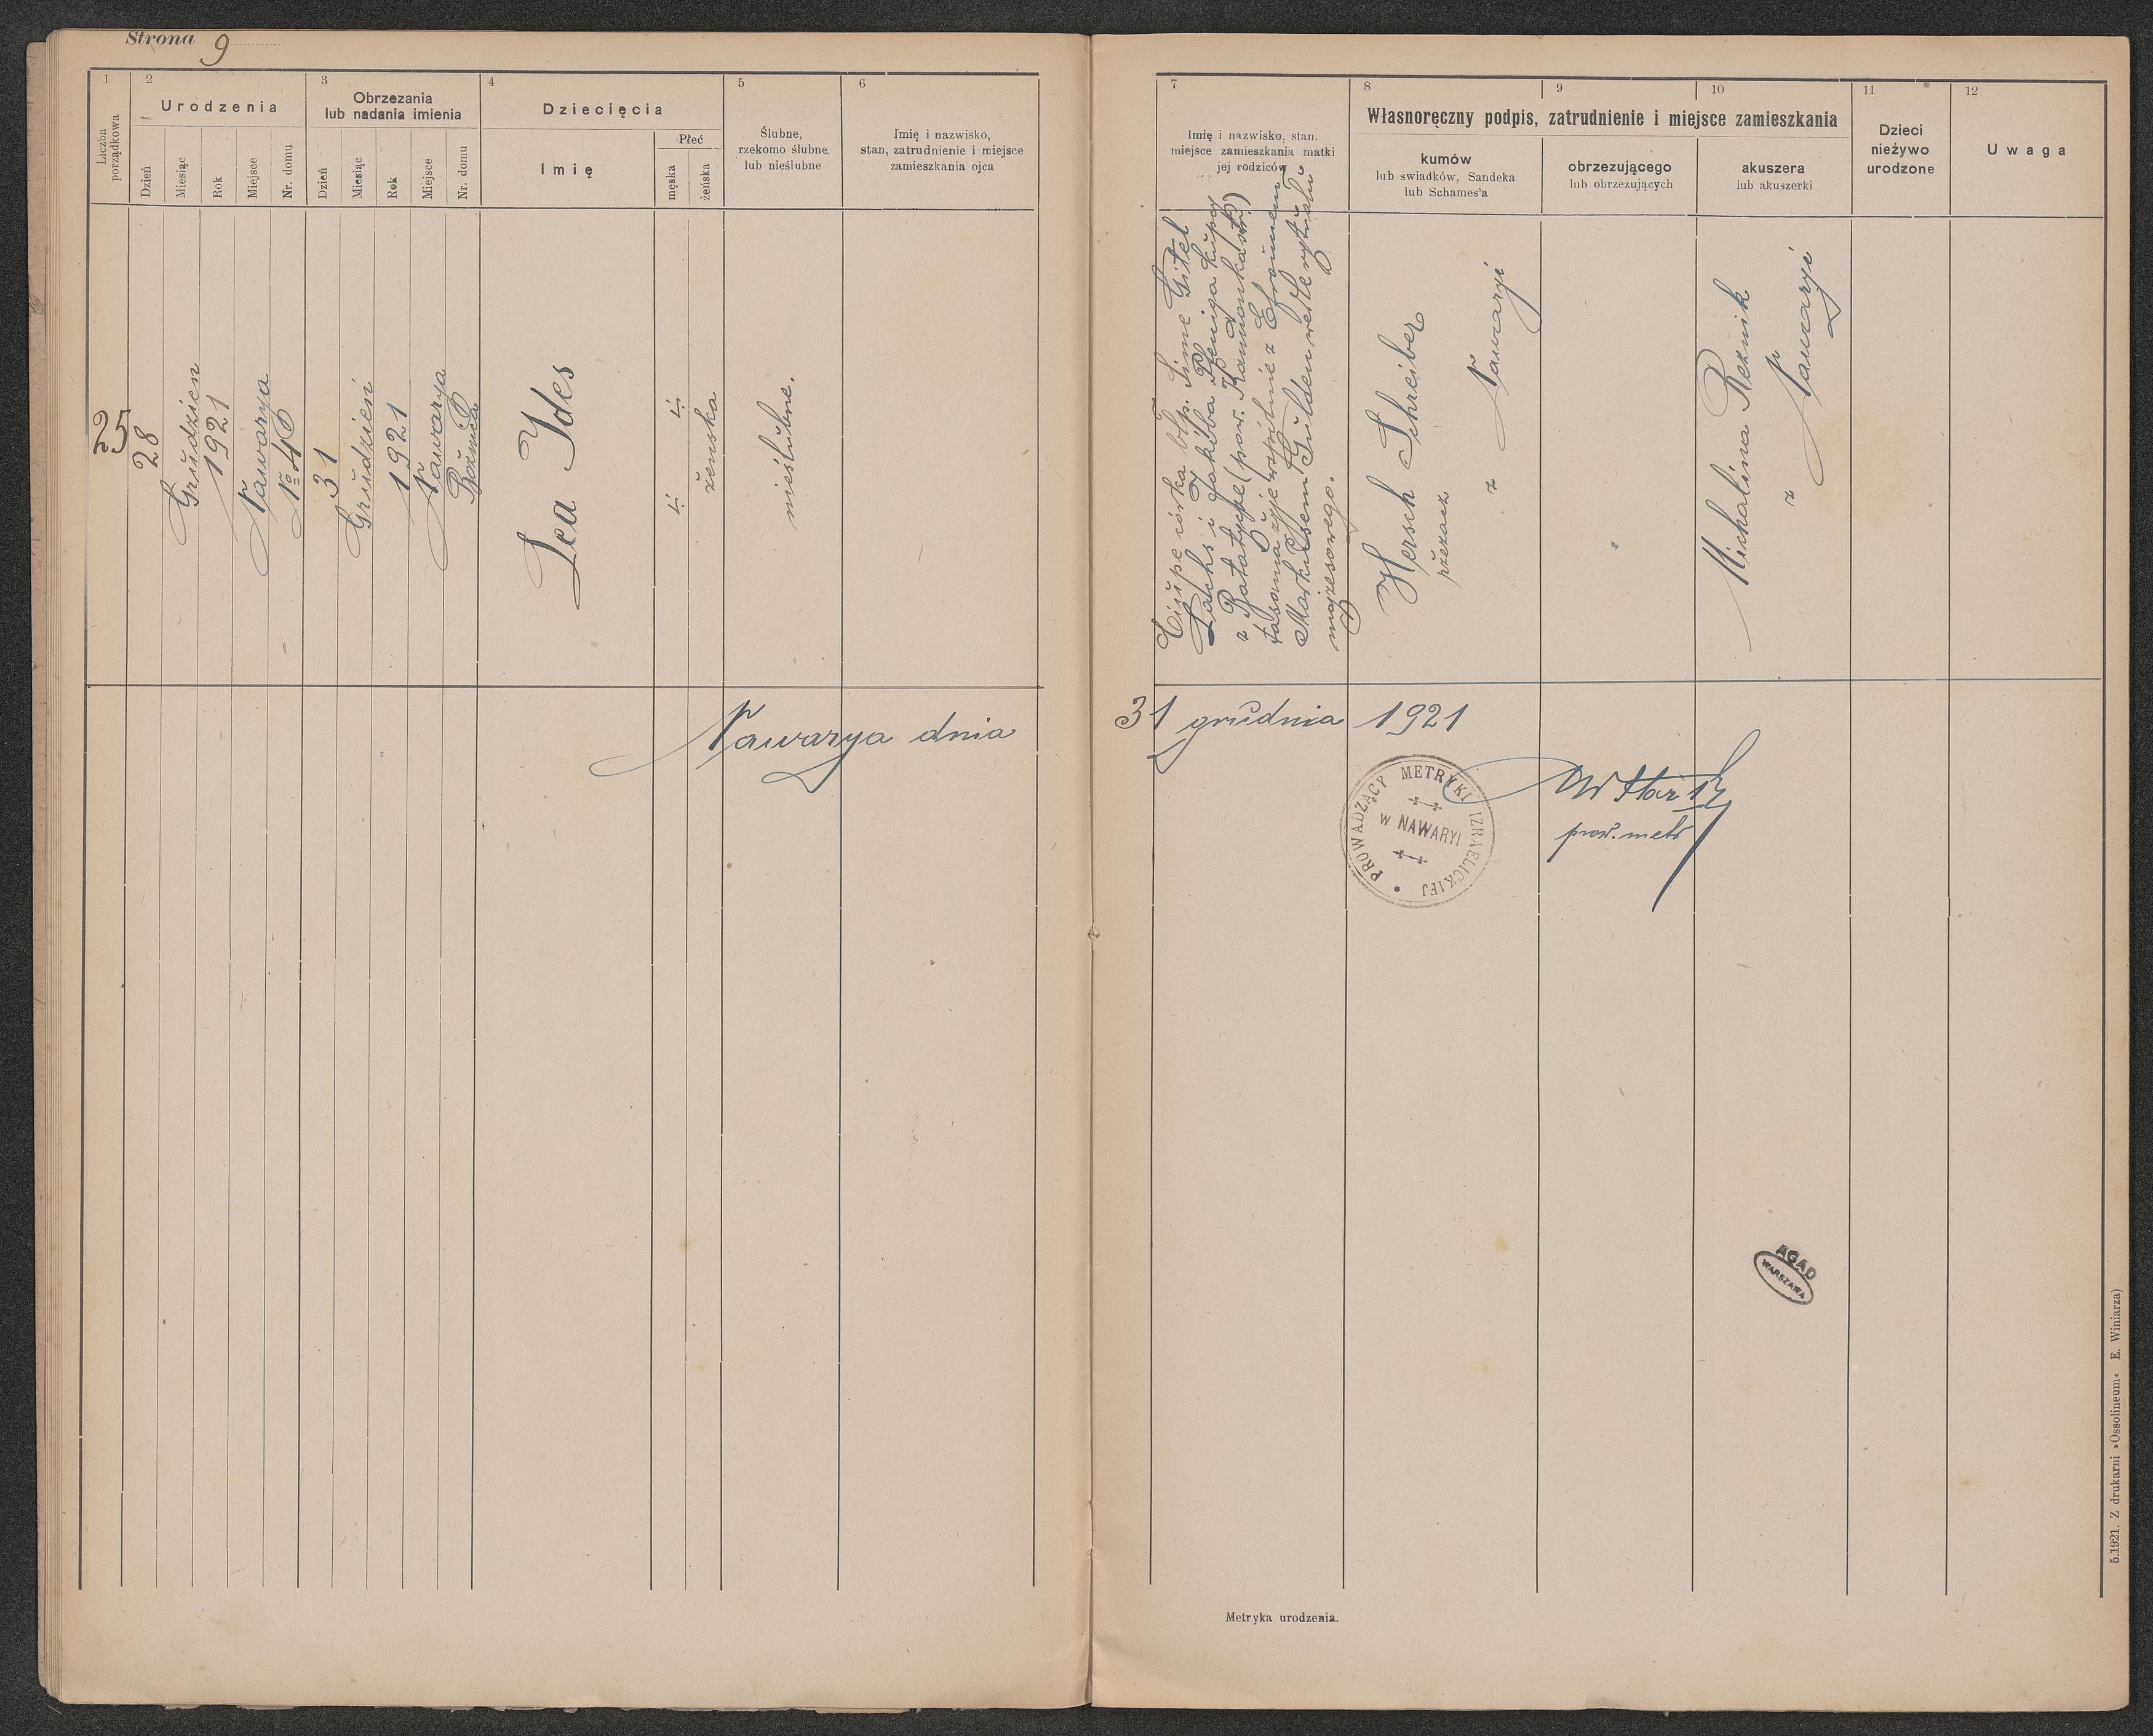 Strona 9
1
2
3
4
5
6
Liczba porządkowa
Urodzenia
Dzień
Miesiąc
Rok
Miejsce
Nr. domu
Obrzezania
lub nadania imienia
Dzień
Miesiąc
Rok
Miejsce
Nr. domu
Dziecięcia
Imię
Płeć
męska
żeńska
Ślubne,
rzekomo ślubne,
lub nieślubne
Imię i nazwisko,
stan, zatrudnienie i miejsce
zamieszkania ojca
25
28
Grudzień
1921
Nawarya
№ 48
31
Grudzień
1921
Nawarya
Bożnica
Lea Ides
żeńska
nieślubne.
Nawarya dnia
7
8
9
10
11
12
Imię i nazwisko, stan.
miejsce zamieszkania matki
jej rodziców
Własnoręczny podpis, zatrudnienie i miejsce zamieszkania
kumów
lub świadków, Sandeka
lub Schames'a
obrzezującego
lub obrzezujących
akuszera
lub akuszerki
Dzieci
nieżywo
urodzone
Uwaga
córka błp. Sime Gitel
i Jakóba kupcy
z Batatycze (pow. Kamionka str.)
żyje wspólnie z Efroimem
Markusem Gulden wedle rytuału
mojżeszowego.
Hersch Schreiber
rzezacz
z Nawaryi
Michalina Reznik
z Nawaryi
31 grudnia 1921
PROWADZĄCY METRYKI IZRAELICKIEJ
w NAWARYI
prow. metr
AGAD
WARSZAWA
5.1921. Z drukarni »Ossolineum« E. Winiarza)
Metryka urodzenia.